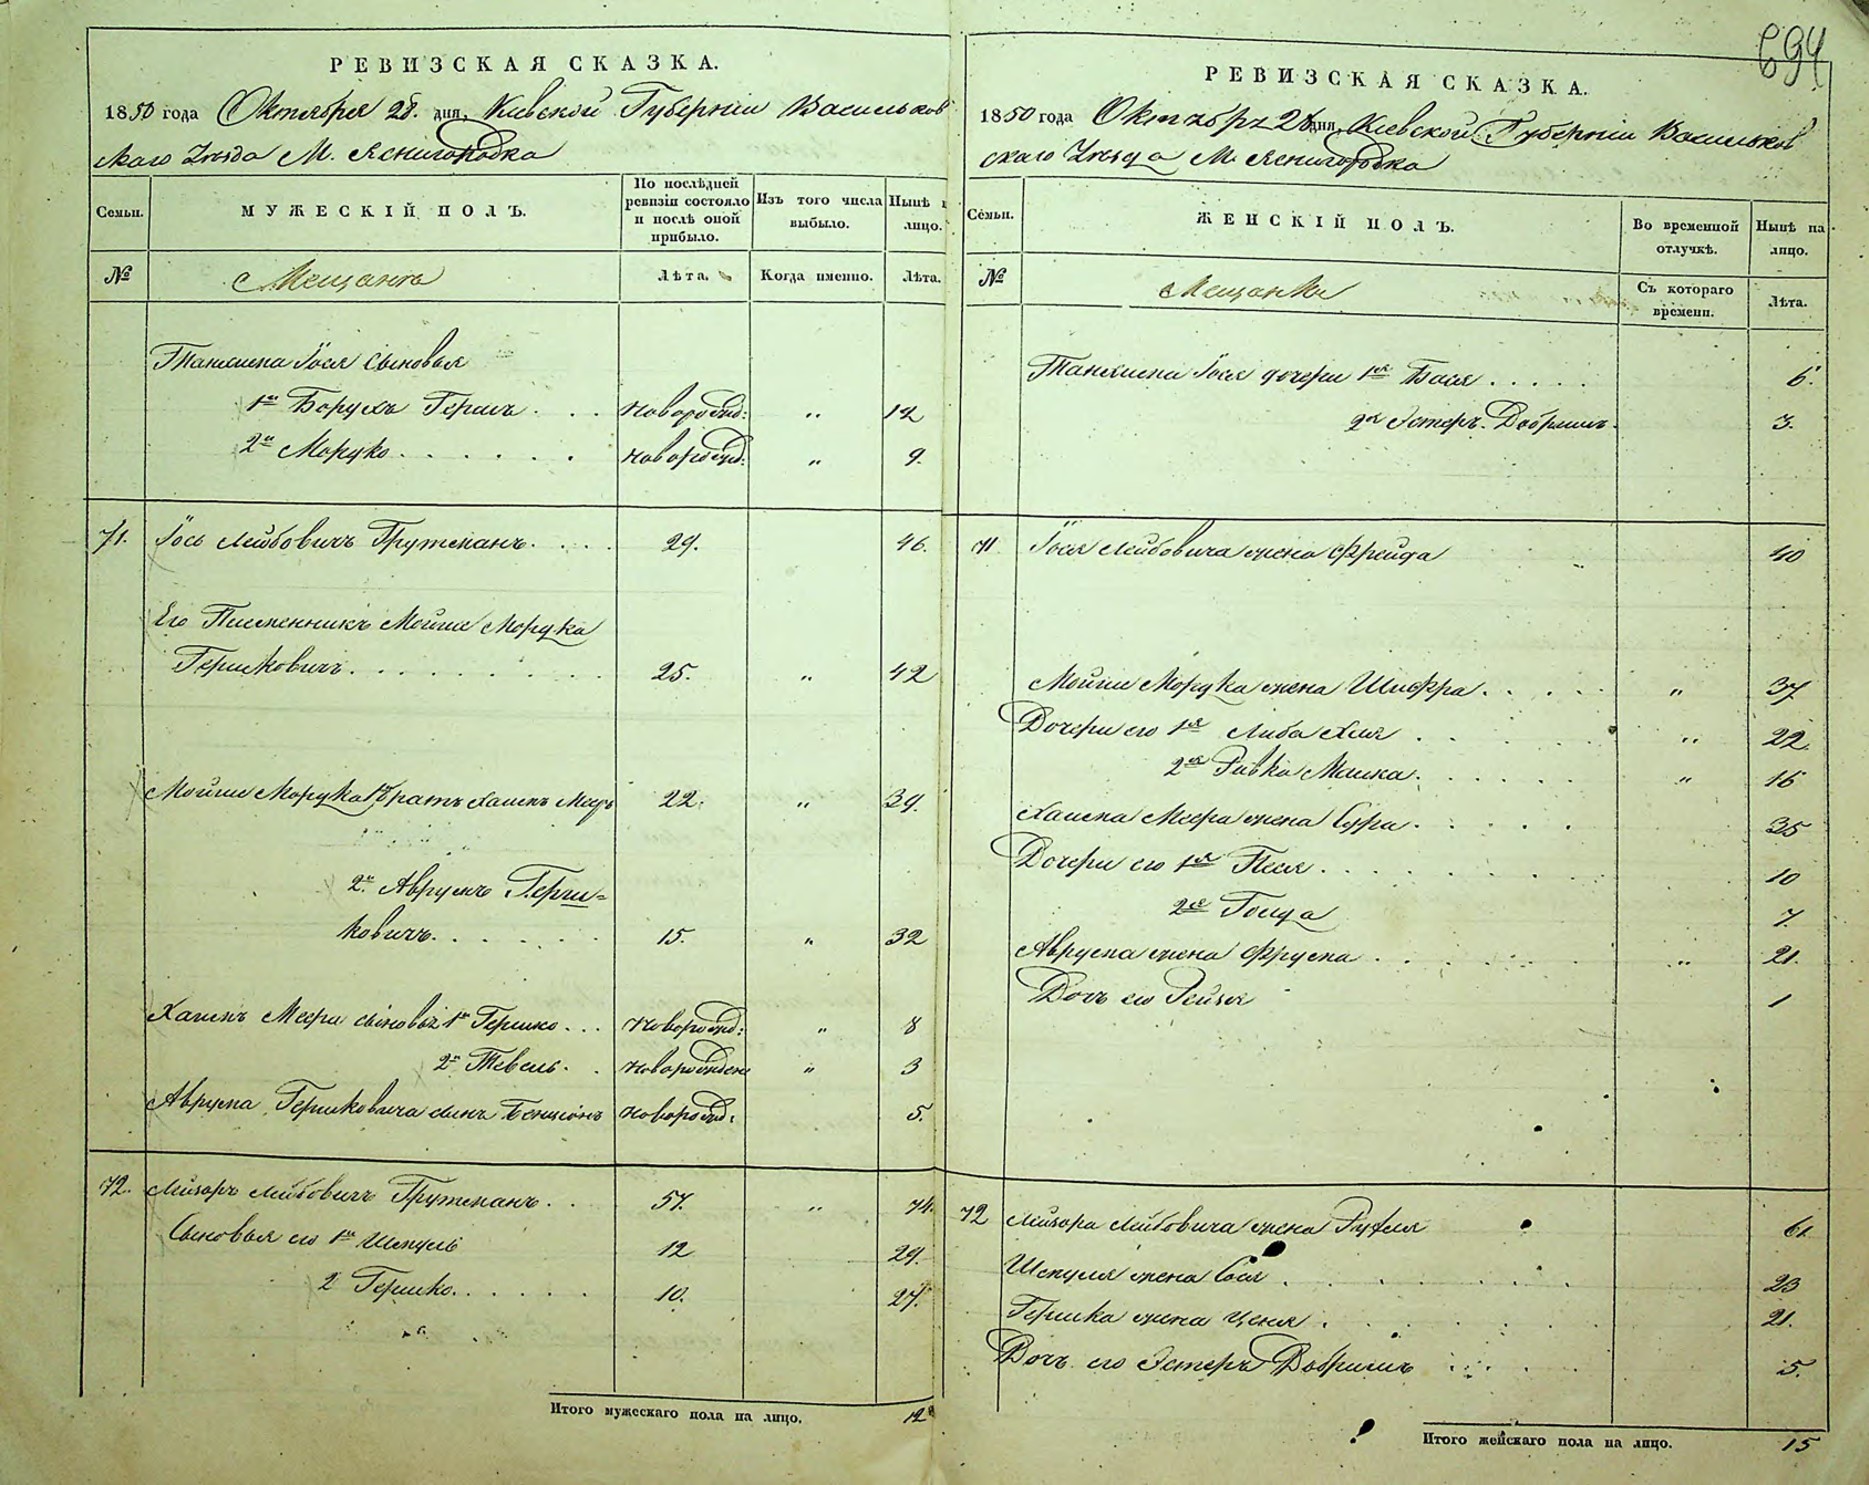 694
РЕВИЗСКАЯ СКАЗКА.
1850 года Октября 28. дня, Киевской Губерніи Васильков
скаго Уезда М. Ясногородка
Семьи.
МУЖЕСКІЙ ПОЛЪ.
По послѣдней ревизіи состояло и послѣ оной прибыло.
Изъ того числа выбыло.
Нынѣ лицо.
№
Мещанъ
Лѣта.
Когда именно.
Лѣта.
Іося сыновья
1й Борухъ Гершъ . . . новорожд: " 12
2й Мордко . . . . . . новорожд: " 9.
71. Іось Лейбовичъ Грутманъ. . . . 29. 46.
Его Племенникъ Мойше Мордка
Гершковичъ . . . . . . . . . 25. " 42
Мойше Мордка 1й братъ Хаимъ Меер 22. " 39.
2й Аврумъ Герш=
ковичъ. . . . . . 15. " 32
Хаимъ Меера сыновья 1й Гершко. . . Новорожд: " 8
2й Тевель. . новорожден " 3
Аврума Гершковича сынъ Бенционъ новорожд: 5.
72. Лейзоръ Лейбовичъ Грутманъ. . . 57. " 74.
Сыновья его 1й Шмуль 12 29.
2 Гершко. . . . . . 10. 27.
Итого мужескаго пола на лицо. 12
РЕВИЗСКАЯ СКАЗКА.
1850 года Октября 28 дня, Киевской Губерніи Васильков
скаго Уезда М. Ясногородка
Семьи.
ЖЕНСКІЙ ПОЛЪ.
Во временной отлучкѣ.
Нынѣ на лицо.
№
Мещанки
Съ котораго времени.
Лѣта.
Іося дочери 1я Бася . . . . . 6.
2я Эстеръ Добришъ. 3.
71 Іося Лейбовича жена Фрейда 40
Мойше Мордка жена Шифра. . . . . " 37
Дочери его 1я Либа Хая . . . . . " 22
2я Ривка Малка. . . . . . " 16
Хаима Меера жена Сура. . . . . 35
Дочери его 1я Песя. . . . . . . . 10
2я Голда 7.
Аврума жена Фрума . . . . . . " 21.
Дочь его Рейзя 1
72 Лейзора Лейбовича жена Рухля 61.
Шмуля жена Сося . . . . . . . 23
Гершка жена Ценя . . . . . . . 21.
Дочь его Эстеръ Добришъ . . . . . 5.
Итого женскаго пола на лицо. 15